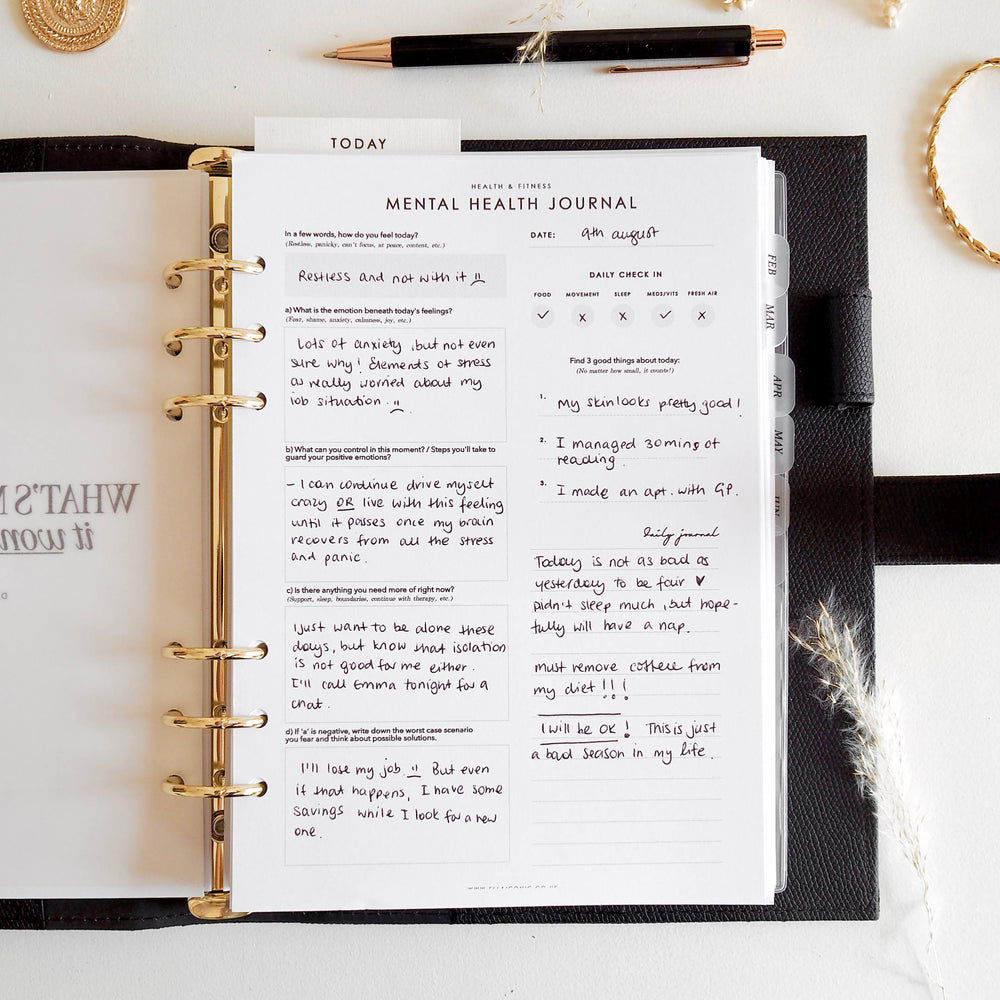 TODAY
HEALTH & FITNESS
MENTAL HEALTH JOURNAL
In a few words, how do you feel today?
(Restless, panicky, can't focus, at peace, content, etc.)
Restless and not with it
a) What is the emotion beneath today's feelings?
(Fear, shame, anxiety, calmness, joy, etc.)
Lots of anxiety, but not even
sure why! Elements of stress
as really worried about my
job situation.
b) What can you control in this moment? / Steps you'll take to
guard your positive emotions?
- I can continue drive myself
crazy OR live with this feeling
until it passes once my brain
recovers from all the stress
and panic.
c) Is there anything you need more of right now?
(Support, sleep, boundaries, continue with therapy, etc.)
I just want to be alone these
days, but know that isolation
is not good for me either.
I'll call Emma tonight for a
chat.
d) If 'a' is negative, write down the worst case scenario
you fear and think about possible solutions.
I'll lose my job. But even
if that happens, I have some
savings while I look for a new
one.
DATE: 9th august
DAILY CHECK IN
FOOD MOVEMENT SLEEP MEDS/VITS FRESH AIR
✓ x x ✓ x
Find 3 good things about today:
(No matter how small, it counts!)
1. My skin looks pretty good!
2. I managed 30mins of
reading.
3. I made an apt. with GP.
Daily journal
Today is not as bad as
yesterday to be fair ♥
Didn't sleep much, but hope-
fully will have a nap.
must remove coffee from
my diet!!!
I will be OK! This is just
a bad season in my life.
FEB
MAR
APR
MAY
JUN
WHAT'S
it